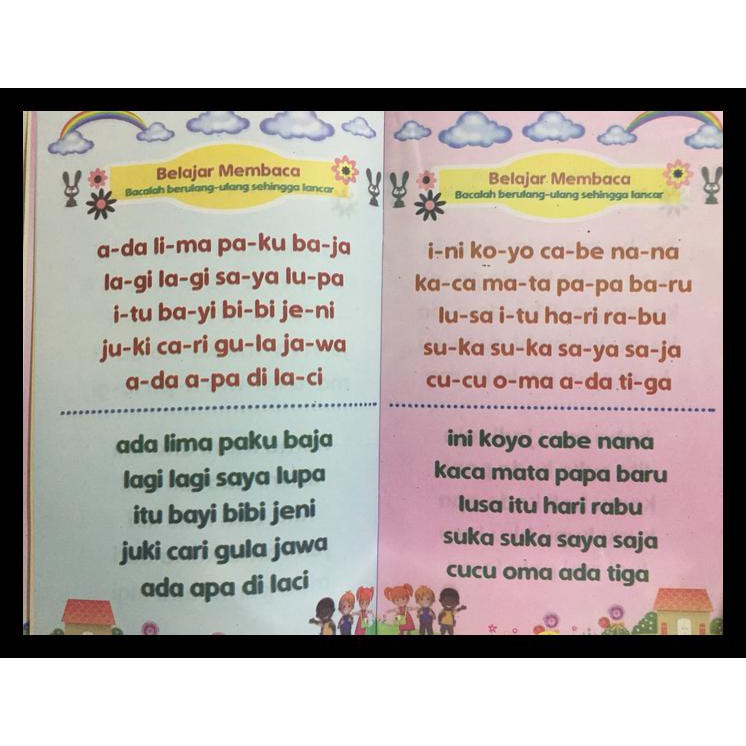 Belajar Membaca
Bacalah berulang-ulang sehingga lancar
a-da li-ma pa-ku ba-ja
la-gi la-gi sa-ya lu-pa
i-tu ba-yi bi-bi je-ni
ju-ki ca-ri gu-la ja-wa
a-da a-pa di la-ci
ada lima paku baja
lagi lagi saya lupa
itu bayi bibi jeni
juki cari gula jawa
ada apa di laci
Belajar Membaca
Bacalah berulang-ulang sehingga lancar
i-ni ko-yo ca-be na-na
ka-ca ma-ta pa-pa ba-ru
lu-sa i-tu ha-ri ra-bu
su-ka su-ka sa-ya sa-ja
cu-cu o-ma a-da ti-ga
ini koyo cabe nana
kaca mata papa baru
lusa itu hari rabu
suka suka saya saja
cucu oma ada tiga